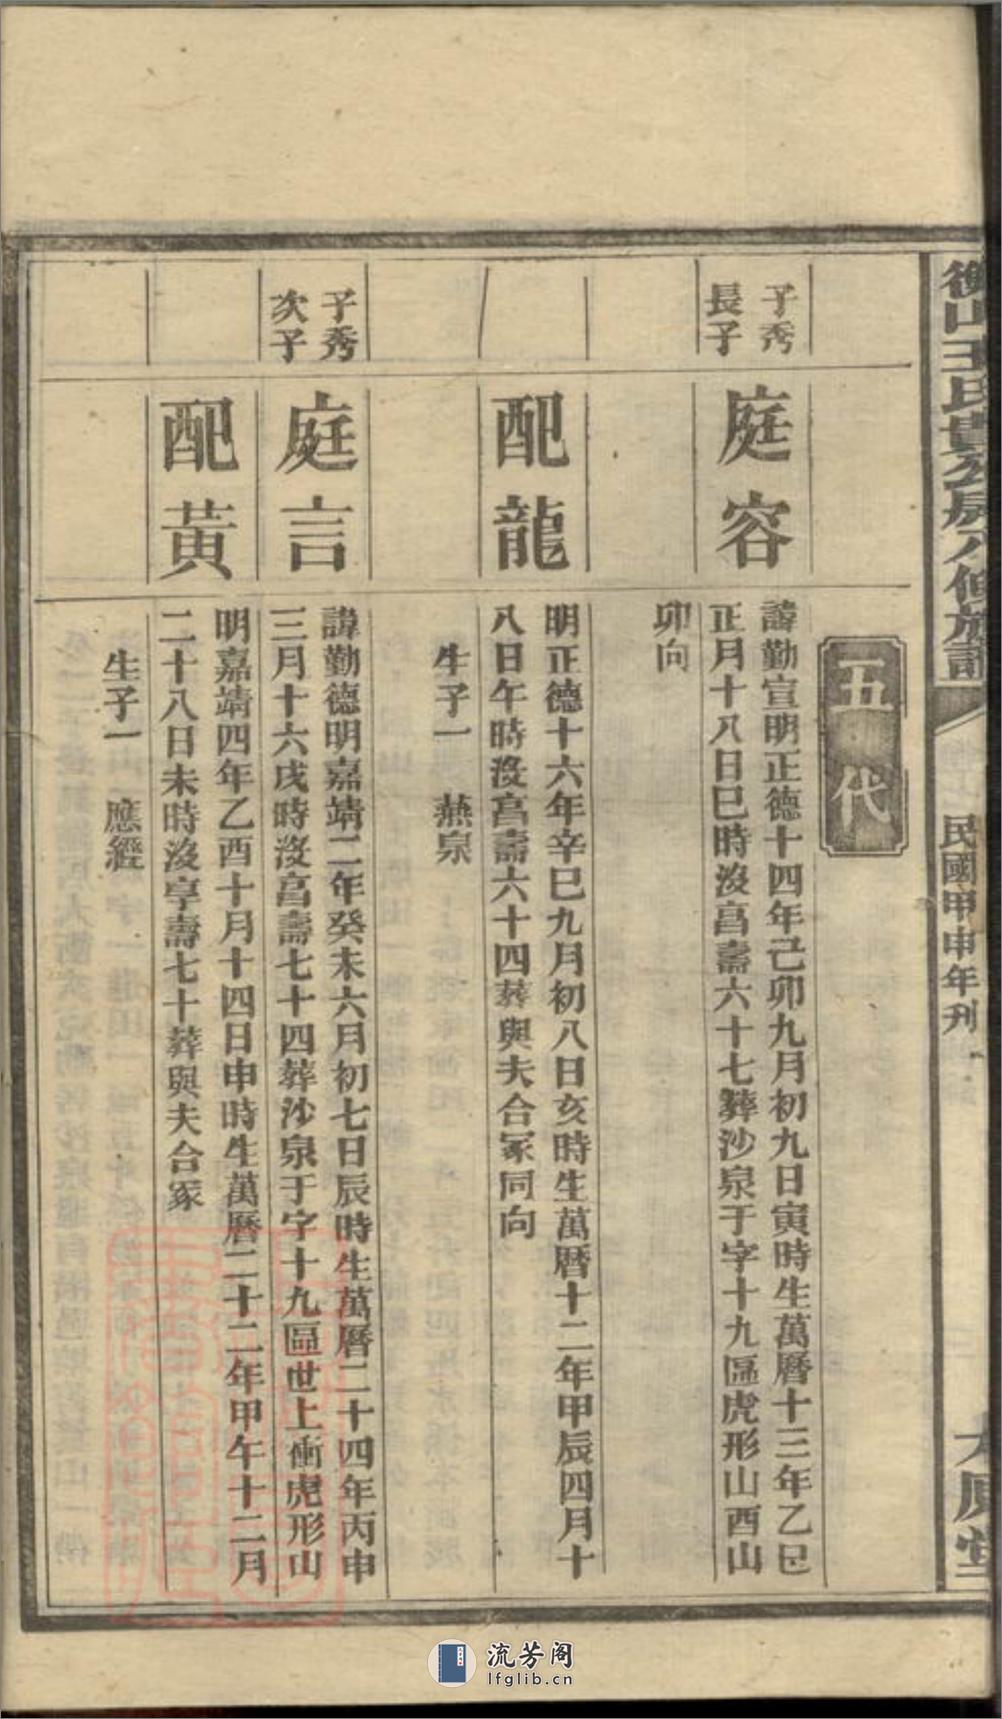 衡山王氏貴公房八修族譜
民國甲申年刊
五代
子秀
長子
庭容
諱勤宣明正德十四年己卯九月初九日寅時生萬曆十三年乙巳
正月十八日巳時沒享壽六十七葬沙泉于字十九區虎形山酉山
卯向
配龍
明正德十六年辛巳九月初八日亥時生萬曆十二年甲辰四月十
八日午時沒享壽六十四葬與夫合冢同向
生子一 燕泉
子秀
次子
庭言
諱勤德明嘉靖二年癸未六月初七日辰時生萬曆二十四年丙申
三月十六戌時沒享壽七十四葬沙泉于字十九區世上衝虎形山
配黃
明嘉靖四年乙酉十月十四日申時生萬曆二十二年甲午十二月
二十八日未時沒享壽七十葬與夫合冢
生子一 應經
流芳阁
lfglib.cn